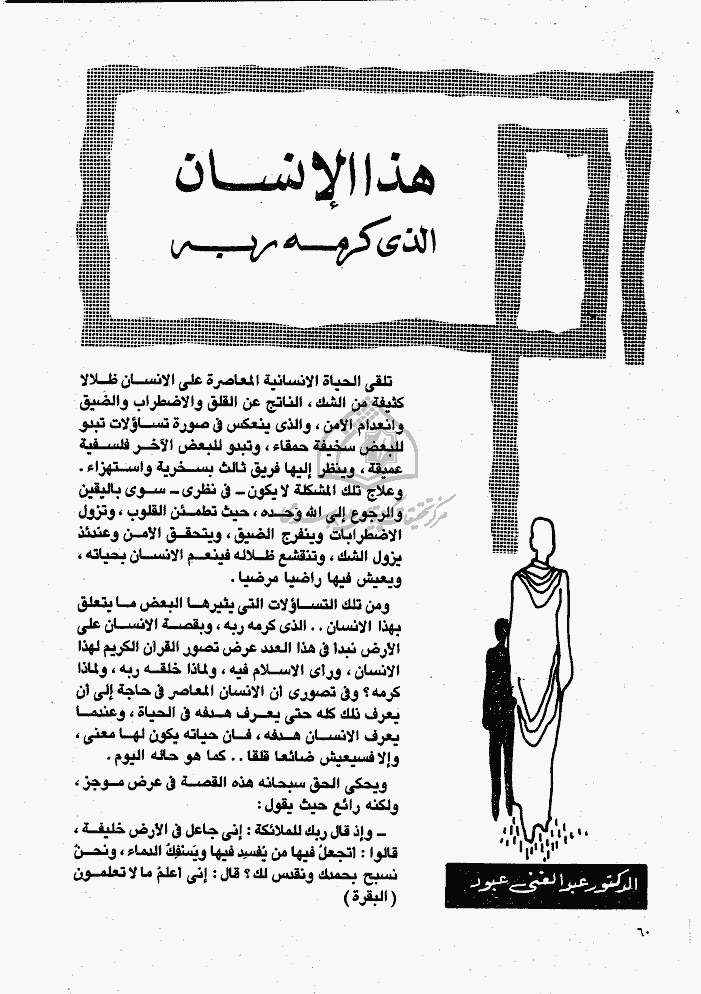 هذا الإنسان
الذى كرمه ربه
تلقى الحياة الانسانية المعاصرة على الانسان ظلالا
كثيفة من الشك ، الناتج عن القلق والاضطراب والضيق
وانعدام الأمن ، والذى ينعكس فى صورة تساؤلات تبدو
للبعض سخيفة حمقاء ، وتبدو للبعض الآخر فلسفية
عميقة ، وينظر إليها فريق ثالث بسخرية واستهزاء .
وعلاج تلك المشكلة لا يكون – فى نظرى – سوى باليقين
والرجوع إلى الله وحده ، حيث تطمئن القلوب ، وتزول
الاضطرابات وينفرج الضيق ، ويتحقق الأمن وعندئذ
يزول الشك ، وتنقشع ظلاله فينعم الانسان بحياته ،
ويعيش فيها راضيا مرضيا .
ومن تلك التساؤلات التى يثيرها البعض ما يتعلق
بهذا الانسان . . الذى كرمه ربه ، وبقصة الانسان على
الأرض نبدأ فى هذا العدد عرض تصور القرآن الكريم لهذا
الانسان ، ورأى الاسلام فيه ، ولماذا خلقه ربه ، ولماذا
كرمه ؟ وفى تصورى أن الانسان المعاصر فى حاجة إلى أن
يعرف ذلك كله حتى يعرف هدفه فى الحياة ، وعندما
يعرف الانسان هدفه ، فان حياته يكون لها معنى ،
وإلا فسيعيش ضائعا قلقا . . كما هو حاله اليوم .
ويحكى الحق سبحانه هذه القصة فى عرض موجز ،
ولكنه رائع حيث يقول :
– وإذ قال ربك للملائكة : إنى جاعل فى الأرض خليفة ،
قالوا : أتجعلُ فيها من يُفسِد فيها ويَسفِكُ الدماء ، ونحنُ
نسبح بحمدك ونقدس لك ؟ قال : إنى أعلمُ ما لا تعلمون
( البقرة )
الدكتور عبد الغنى عبود
٦٠